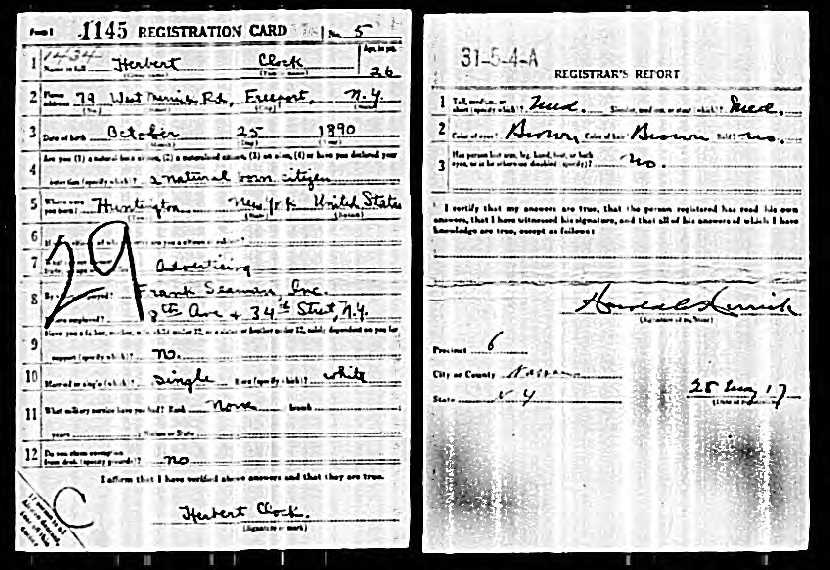 Form 1 1145 REGISTRATION CARD No. 5
1434
Age, in yrs.
1 Name in full Herbert Clock 26
(Given name) (Family name)
2 Home address 79 West Merrick Rd, Freeport, N.Y.
(No.) (Street) (City) (State)
3 Date of birth October 25 1890
(Month) (Day) (Year)
4 Are you (1) a natural born citizen, (2) a naturalized citizen, (3) an alien, (4) or have you declared your
intention (specify which)? a natural born citizen
5 Where were you born? Huntington New York United States
(Town) (State) (Nation)
6 If not a citizen, of what country are you a citizen or subject?
7 Advertising
29
8 By whom employed? Frank Seaman, Inc.
Where employed? 8th Ave + 34th Street, N.Y.
9 Have you a father, mother, wife, child under 12, or a sister or brother under 12, solely dependent on you for
support (specify which)? No.
10 Married or single (which)? Single Race (specify which)? White
11 What military service have you had? Rank None branch
years Nation or State
12 Do you claim exemption
from draft (specify grounds)? No
I affirm that I have verified above answers and that they are true.
C
Herbert Clock.
(Signature or mark)
31-5-4-A
REGISTRAR'S REPORT
1 Tall, medium, or short (specify which)? Med. Slender, medium, or stout (which)? Med.
2 Color of eyes? Brown, Color of hair? Brown Bald? No.
3 Has person lost arm, leg, hand, foot, or both
eyes, or is he otherwise disabled (specify)? No.
I certify that my answers are true, that the person registered has read his own
answers, that I have witnessed his signature, and that all of his answers of which I have
knowledge are true, except as follows:
(Signature of registrar)
Precinct 6
City or County Nassau
State N Y
(Date of registration)